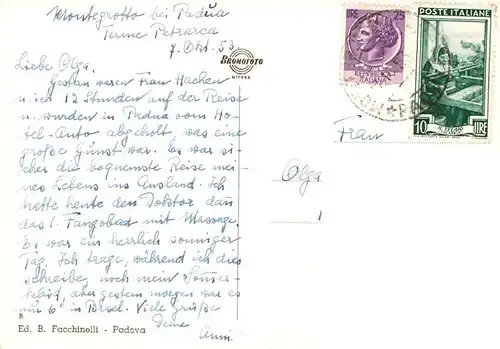 Montegrotto bei Padua
Terme Petrarca
7. Okt. 53
BROMOFOTO
MILANO
Liebe Olga,
Gestern waren Frau Hachen
u. ich 12 Stunden auf der Reise
u. wurden in Padua vom Ho-
tel-Auto abgeholt, was eine
große Gunst war. Es war si-
cher die bequemste Reise mei-
nes Lebens ins Ausland. Ich
hatte heute den Doktor dann
das 1. Fangobad mit Massage.
Es war ein herrlich sonniger
Tag. Ich trage, während ich dies
schreibe, noch mein Sommer-
kleid, aber gestern morgen war es
nur 6° in Basel. Viele Grüße
Deine
Anni
8
Ed. B. Facchinelli - Padova
LIRE 25
POSTE ITALIANE
10 LIRE
IL TELAIO
Frau
Olga